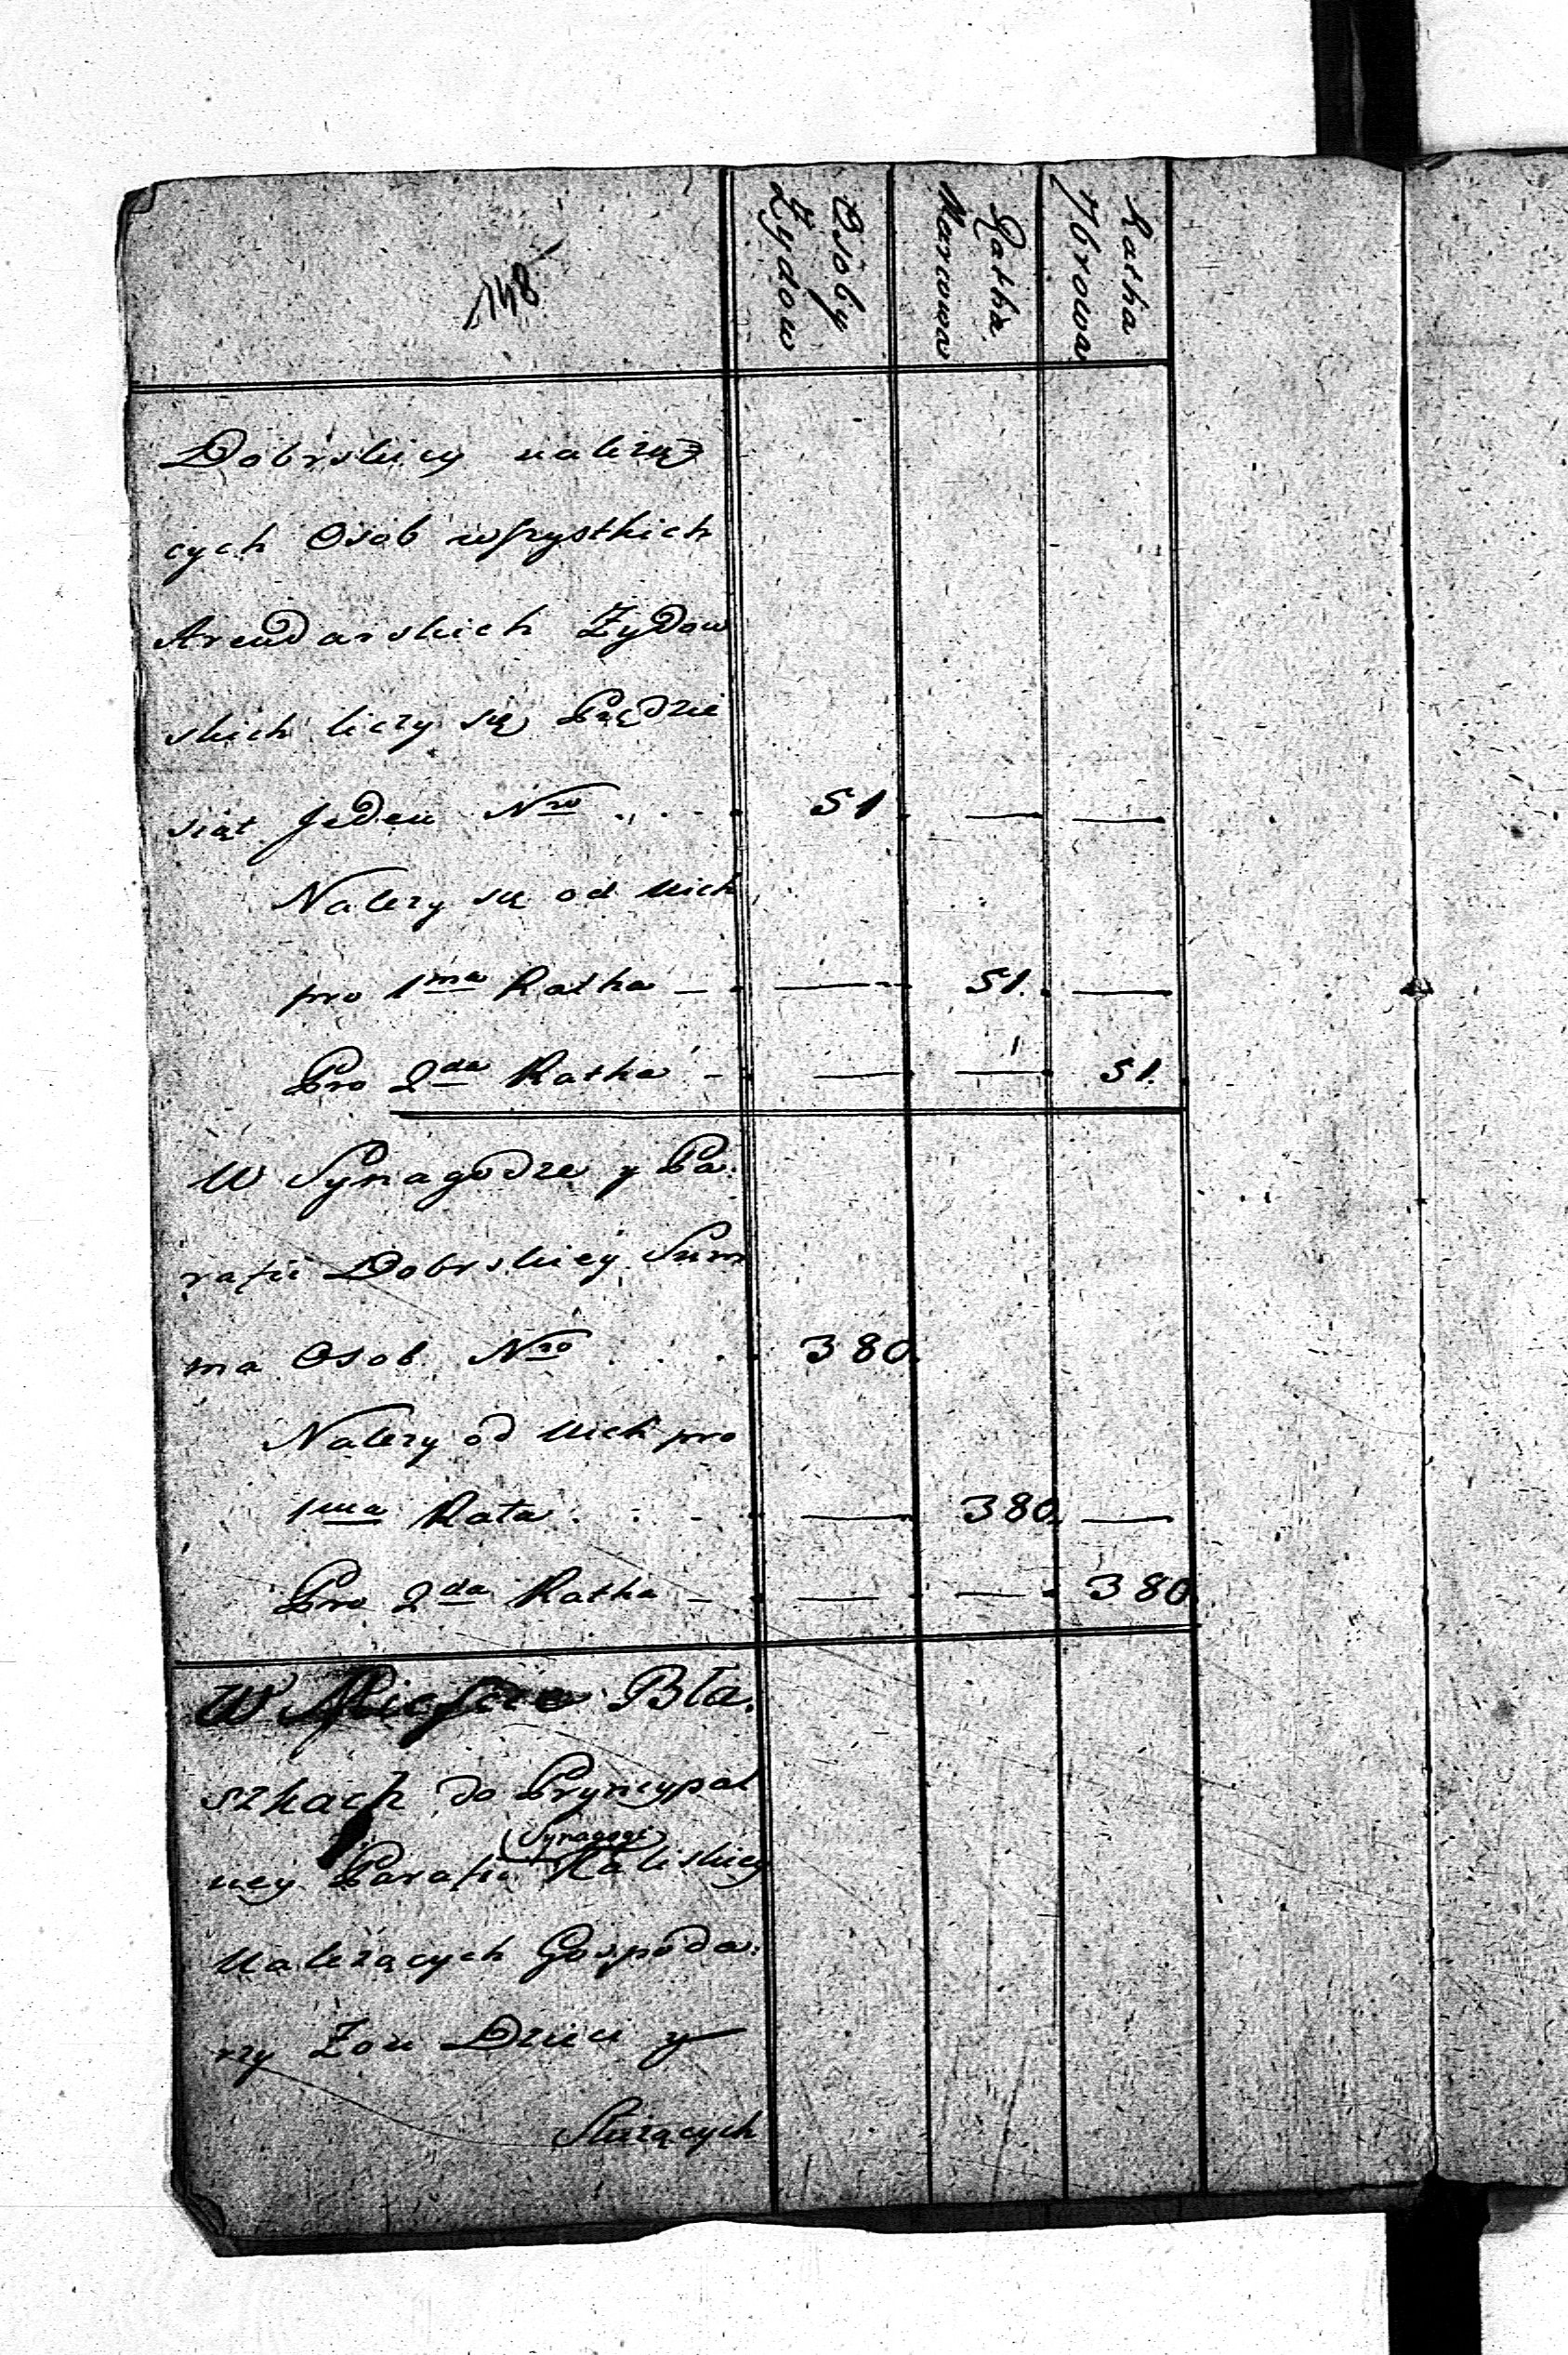 148
Osoby Zydow
Ratha Marcowa
Ratha 7browa
Dobrskiey należą
cych Osob wszystkich
Arendarskich Zydow
skich liczy się Piędzie
siąt Jeden Nro . . . 51 — —
Nalezy się od Nich
pro 1ma Ratha — — 51. —
Pro 2da Ratha — — — 51.
W Synagodze y Pa:
rafii Dobrskiey Sum
ma Osob Nro . . . 380.
Nalezy od Nich pro
1ma Rata . . . — 380. —
Pro 2da Ratha — — — 380.
W Mieście Bła:
szkach do Pryncypal
(Synagogi)
ney Parafii Kaliskiey
Należących Gospoda:
rzy Zon Dzieci y
Służących